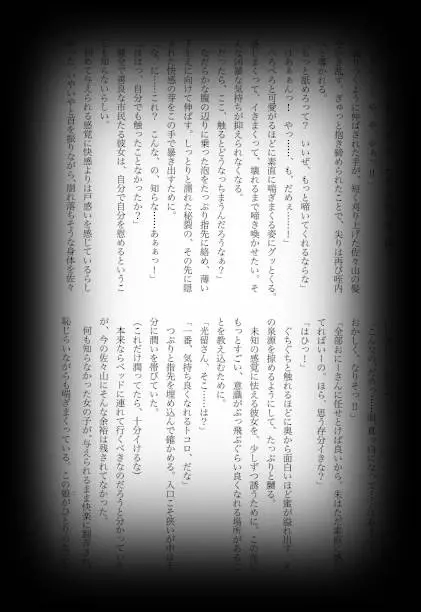 くように伸ばされた手が、短く刈り上げた佐々山の髪
き乱す。ぎゅっと抱き締められたことで、尖りは再び咥内
導かれる。
もっと舐めろって？　いいぜ、もっと啼いてくれるならな」
はあぁぁんっ！　やっ……、も、だめぇ………！」
べろと可愛がるほどに素直に喘ぎまくる姿にグッとくる。
しまくって、イきまくって、壊れるまで啼き喚かせたい。そ
な凶暴な気持ちが抑えられなくなる。
だったら、ここ、触るとどうなっちまうんだろうなぁ？」
なだらかな腹の辺りに乗った泡をたっぷり指先に絡め、薄い
えに向けて伸ばす。しっとりと濡れた秘裂の、その先に隠
た快感の芽をこの手で暴き出すために。
な、に……これ？　こんな、の、知らな……あぁぁっ！」
ははっ、自分でも触ったことなかったか？」
健全で善良な市民たる彼女は、自分で自分を慰めるというこ
とも知らないらしい。
初めて与えられる感覚に快感よりは戸惑いを感じているらし
いやいやと首を振りながら、崩れ落ちそうな身体を佐々
おかしく、なりそっ!!」
「全部おにーさんに任せとけば良いから。朱はただ素直に
てればいーの。ほら、思う存分イきな？」
「はひっ！」
ぐちぐちと触れるほどに奥から面白いほど蜜が溢れ出す。
の泉源を掠めるようにして、たっぷりと嬲る。
未知の感覚に怯える彼女を、少しずつ誘うために。この
もっとすごい、意識がぶっ飛ぶぐらい良くなれる場所がある
とを教え込むために。
「光留さん、そこ……は？」
「一番、気持ち良くなれるトコロ、だな」
つぷりと指先を埋め込んで確かめる。入口こそ狭いが中は
分に潤いを帯びていた。
（これだけ潤ってたら、十分イけるな）
本来ならベッドに連れて行くべきなのだろうと分かってい
が、今の佐々山にそんな余裕は残されてなかった。
何も知らなかった女の子が、与えられるまま快楽に翻弄され
恥じらいながらも喘ぎまくっている。この娘がひとりの